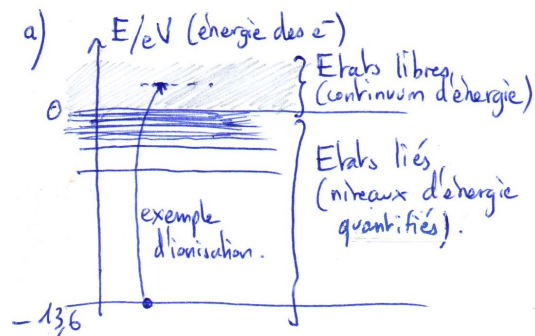 a)
E/eV (énergie des e⁻)
Etats libres
(continuum d'énergie)
0
Etats liés
(niveaux d'énergie
quantifiés).
exemple
d'ionisation.
-13,6